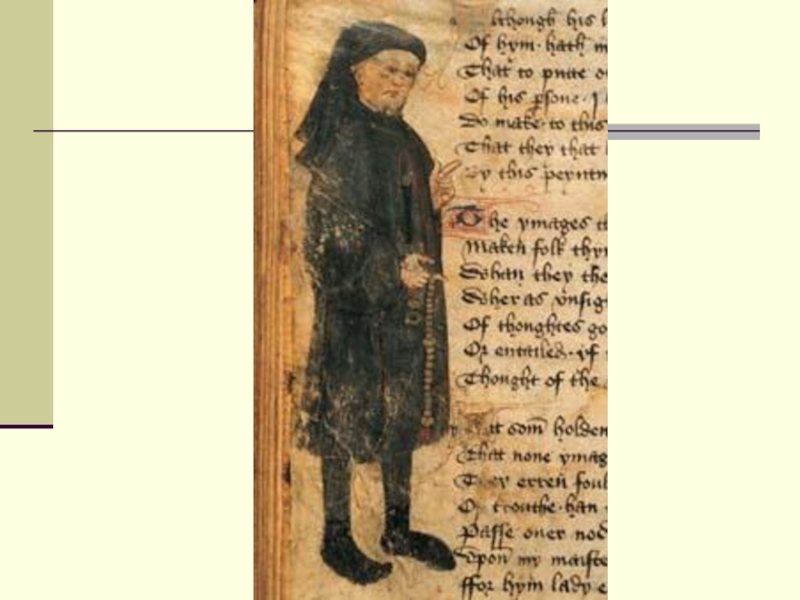 lthough his l
Of hym · hath m
That to putte o
Of his psone · I
Do make to this
That they that
By this peyntu
The ymages t
Maken folk thy
Whan they the
Wher as vnsig
Of thoughtes go
Or entailed · yf
Thought of the
it som holden
That none ymag
They erren foul
Of trouthe · han
Passe ouer
Vpon my maiste
ffor hym lady e